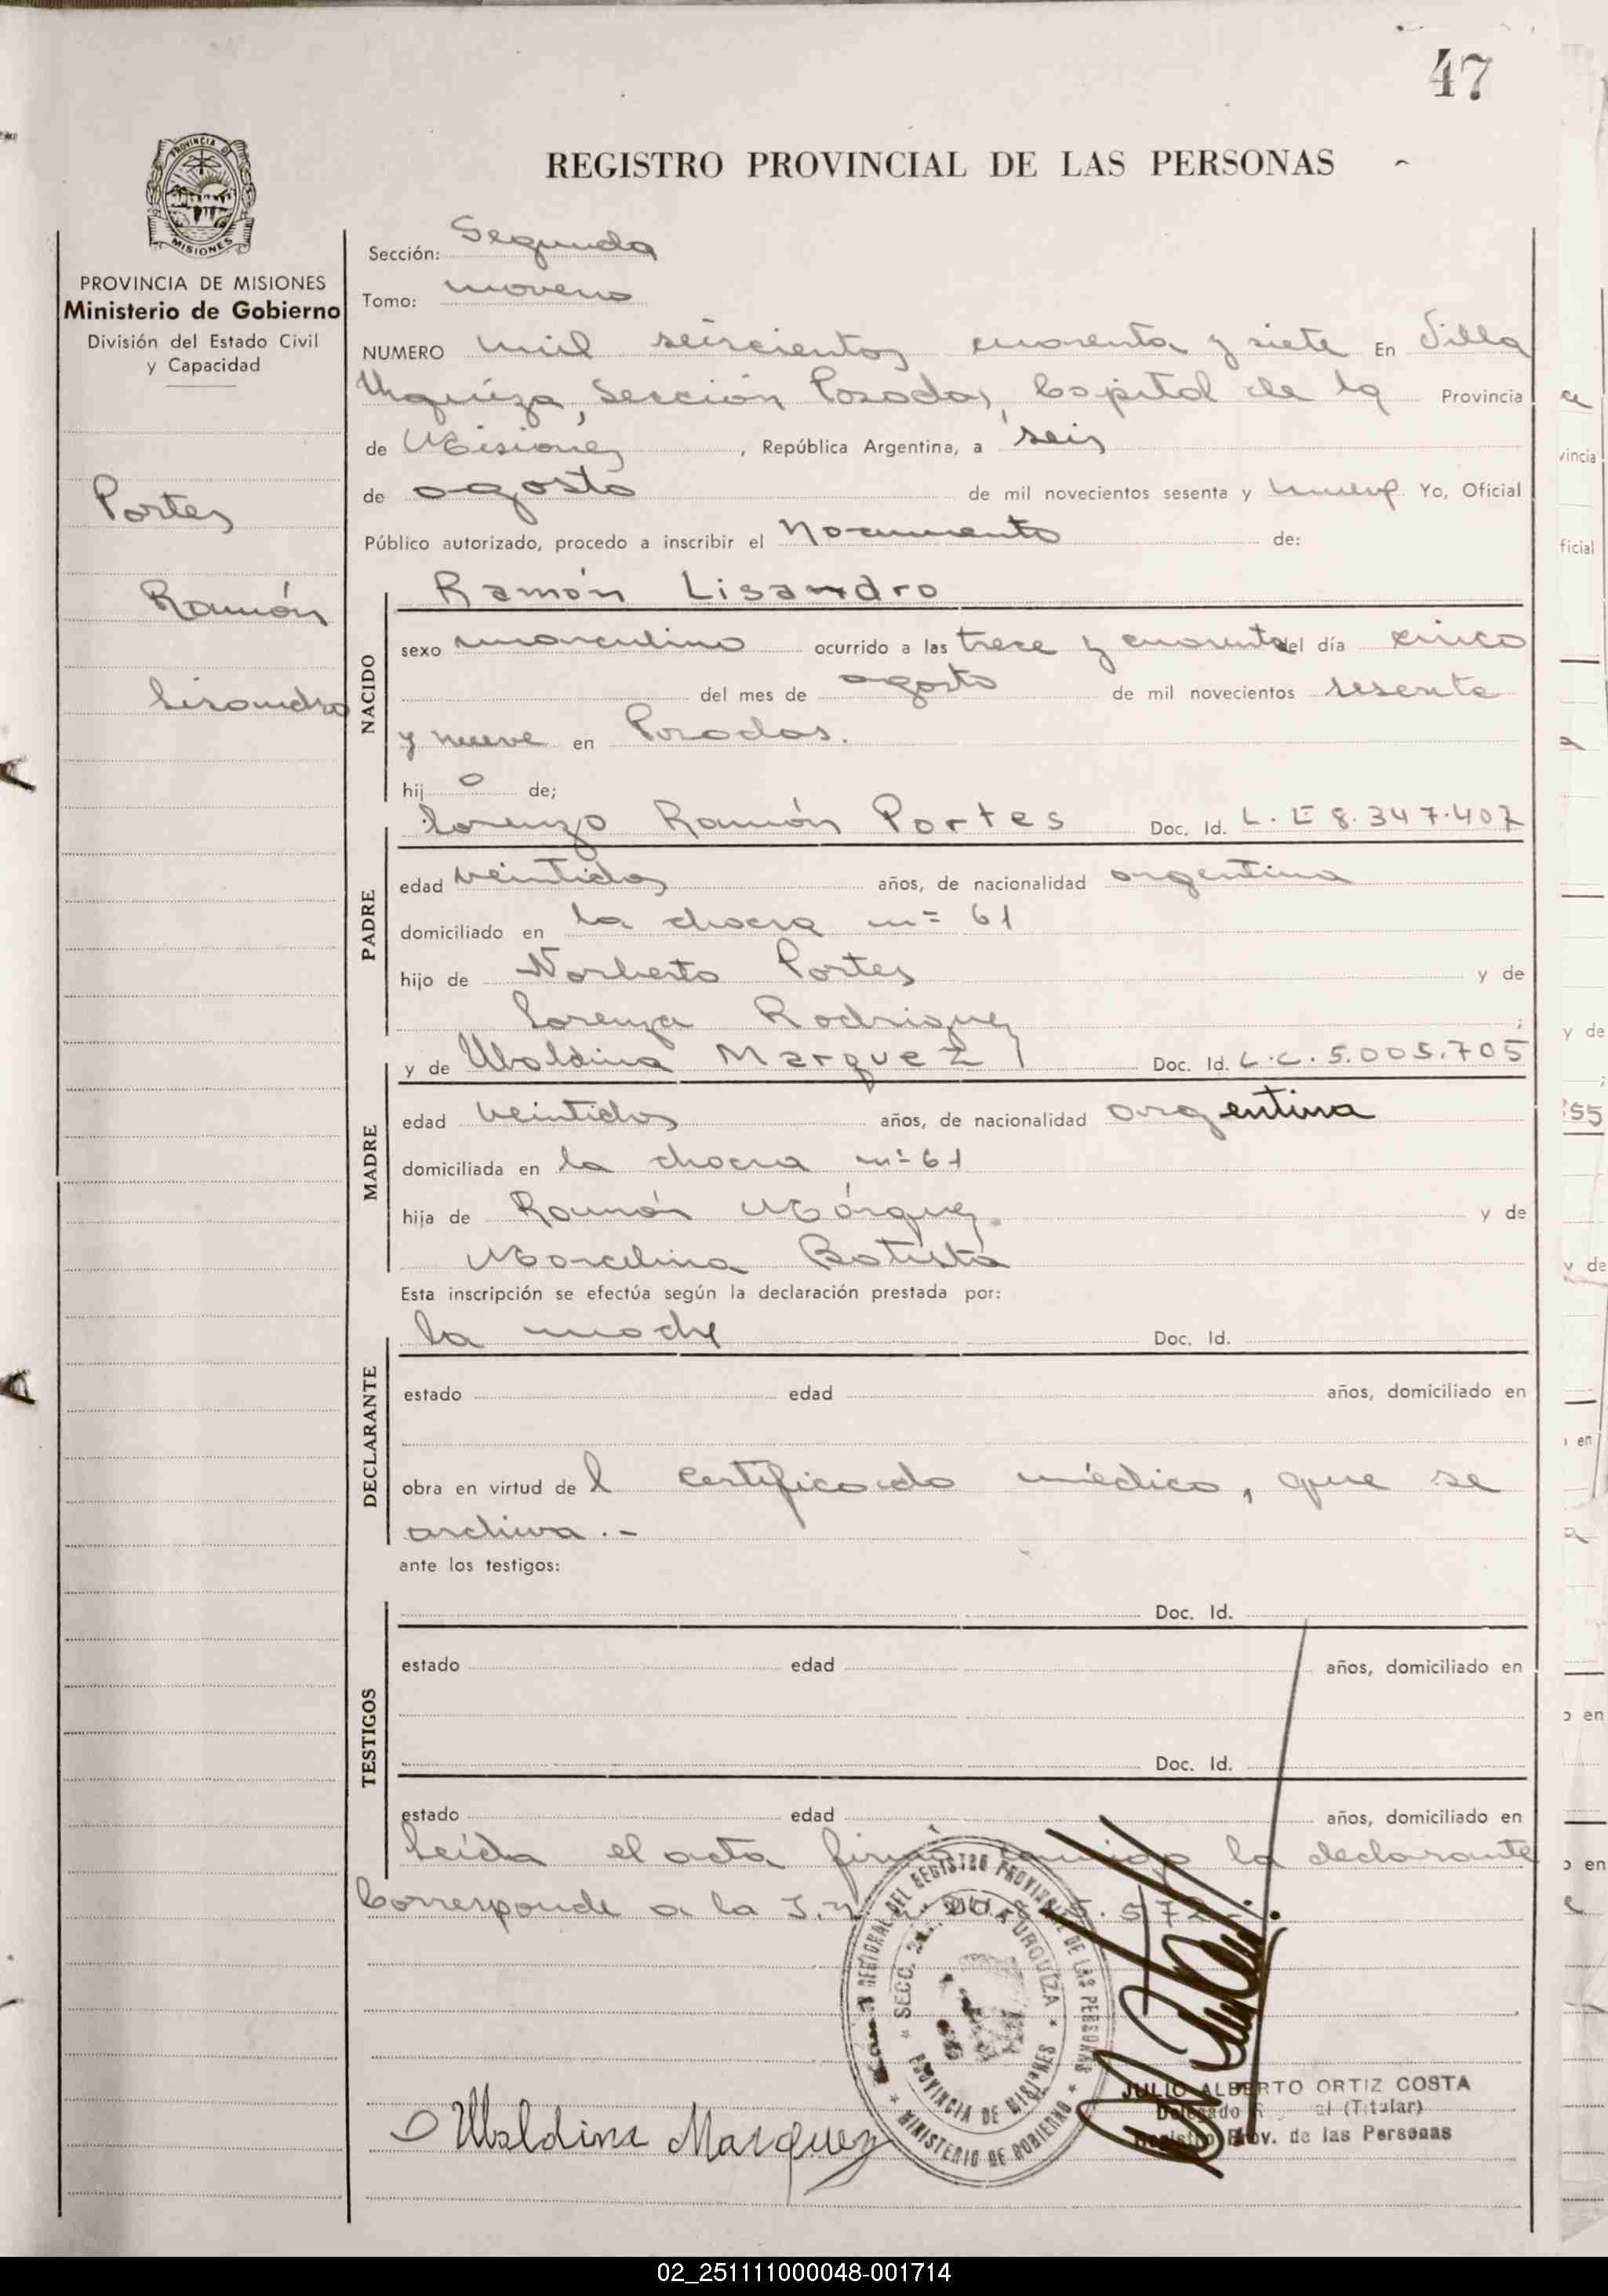 47
REGISTRO PROVINCIAL DE LAS PERSONAS
PROVINCIA DE
MISIONES
PROVINCIA DE MISIONES
Ministerio de Gobierno
División del Estado Civil
y Capacidad
Portes
Ramón
Lisandro
Sección: Segunda
Tomo: noveno
NUMERO mil seiscientos cuarenta y siete En Villa
Urquiza, Sección Posadas, Capital de la Provincia
de Misiones, República Argentina, a seis
de agosto de mil novecientos sesenta y nueve Yo, Oficial
Público autorizado, procedo a inscribir el Nacimiento de:
NACIDO
Ramón Lisandro
sexo masculino ocurrido a las trece y cuarenta del día cinco
del mes de agosto de mil novecientos sesenta
y nueve en Posadas.
hij o de;
PADRE
Lorenzo Ramón Portes Doc. Id. L. E 8.347.407
edad veintidos años, de nacionalidad argentina
domiciliado en la chacra nº 61
hijo de Norberto Portes y de
Lorenza Rodriguez ;
MADRE
y de Ubaldina Marquez Doc. Id. L.C. 5.005.705
edad veintidos años, de nacionalidad argentina
domiciliada en la chacra nº 61
hija de Ramón Márquez y de
Marcelina Batista
Esta inscripción se efectúa según la declaración prestada por:
DECLARANTE
la madre Doc. Id.
estado edad años, domiciliado en
obra en virtud de l certificado médico, que se
archiva.-
ante los testigos:
TESTIGOS
Doc. Id.
estado edad años, domiciliado en
Doc. Id.
estado edad años, domiciliado en
Leída el acta firma conmigo la declarante
Corresponde a la 572
DEL REGISTRO PROVINCIAL DE LAS PERSONAS
SECC. 2a. VILLA URQUIZA
PROVINCIA DE MISIONES
MINISTERIO DE GOBIERNO
Ubaldina Marquez
JULIO ALBERTO ORTIZ COSTA
Delegado (Titular)
Registro Prov. de las Personas
02_251111000048-001714